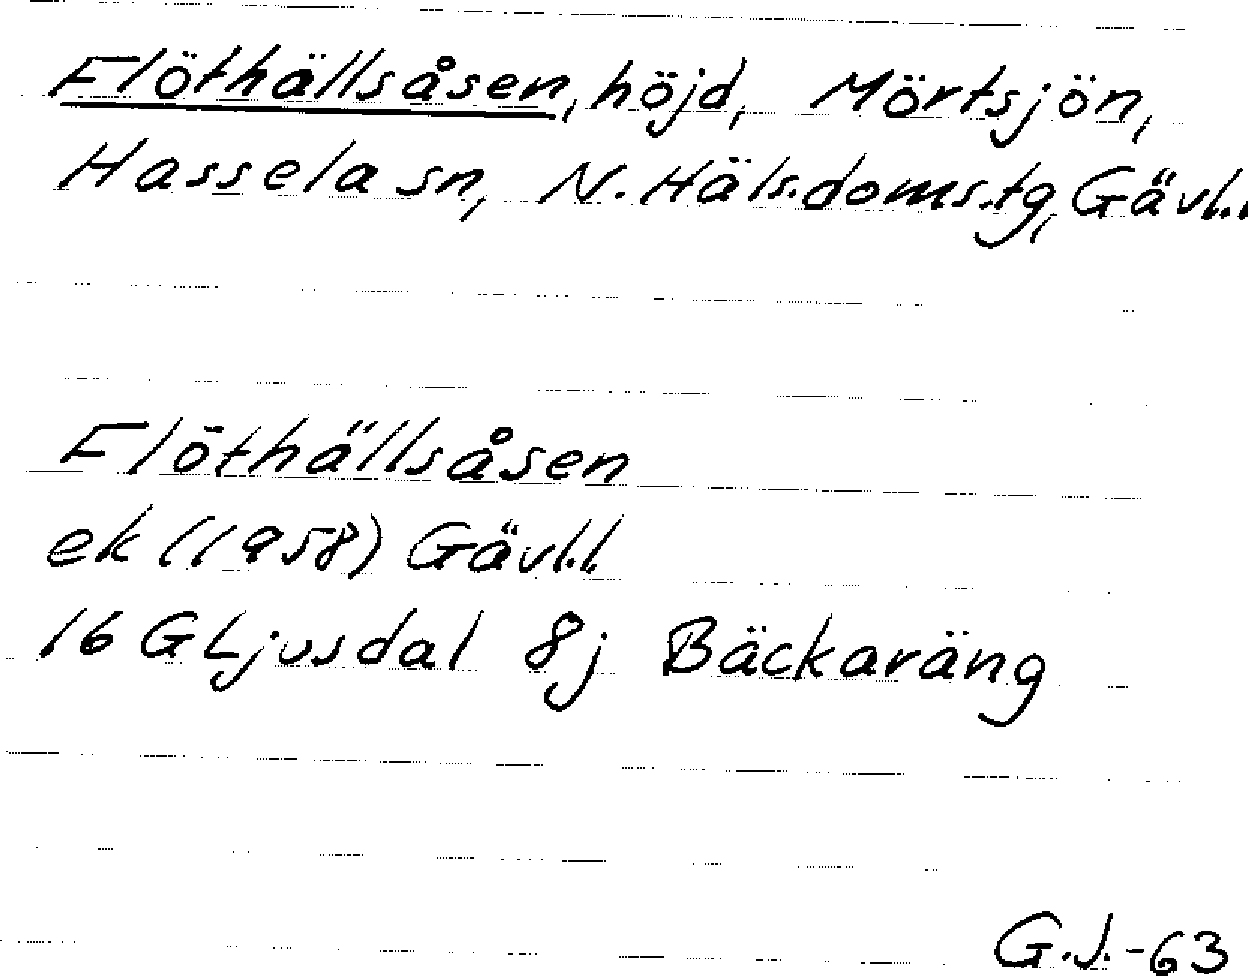 Flöthällsåsen, höjd, Mörtsjön,
Hassela sn, N. Häls. doms.tg, Gävl.l
Flöthällsåsen
ek (1958) Gävl.l
16 G Ljusdal 8j Bäckaräng
G.J.-63